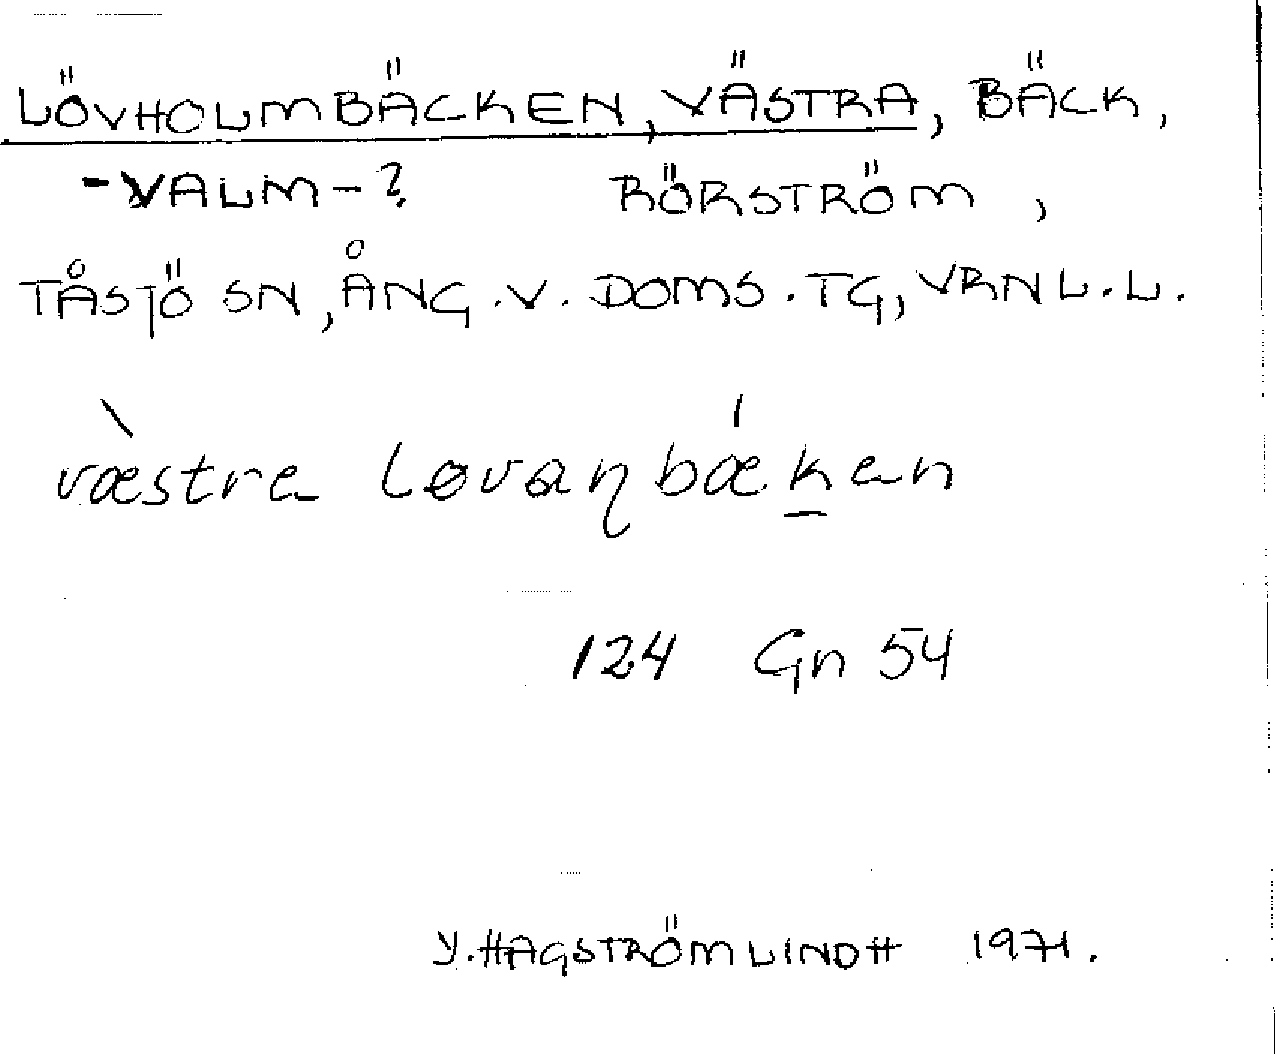 LÖVHOLMBÄCKEN, VÄSTRA, BÄCK,
-VALM-? RÖRSTRÖM,
TÅSJÖ SN, ÅNG.V. DOMS.TG, VRNL.L.
væ̀stre løvaŋbǽḵen
124 Gn 54
Y. HAGSTRÖM LINDH 1971.